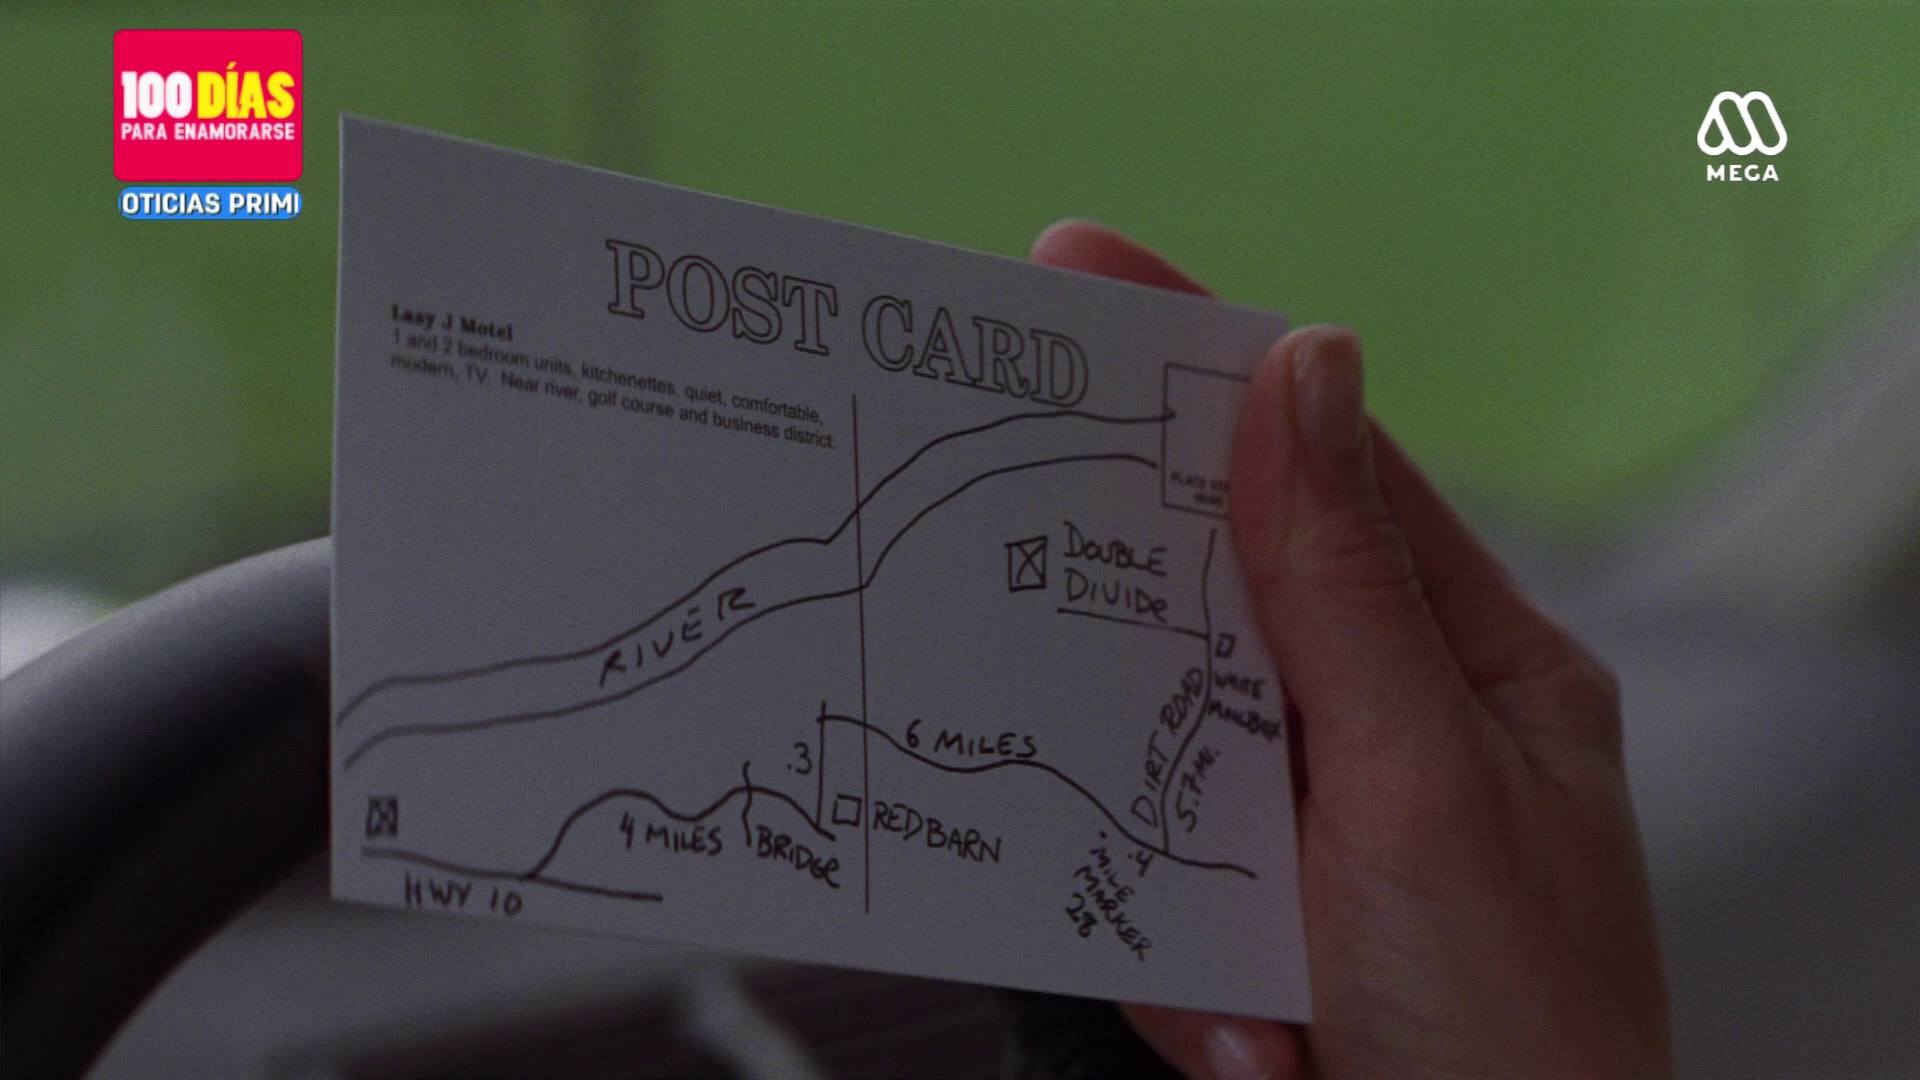 100 DÍAS
PARA ENAMORARSE
OTICIAS PRIMI
MEGA
POST CARD
Lazy J Motel
1 and 2 bedroom units, kitchenettes, quiet, comfortable,
modern, TV. Near river, golf course and business district.
PLACE
HERE
DOUBLE
DIVIDE
RIVER
WHITE
MAILBOX
DIRT ROAD
5.7 MI.
6 MILES
.3
RED BARN
4 MILES
BRIDGE
.4
MILE
MARKER
28
HWY 10